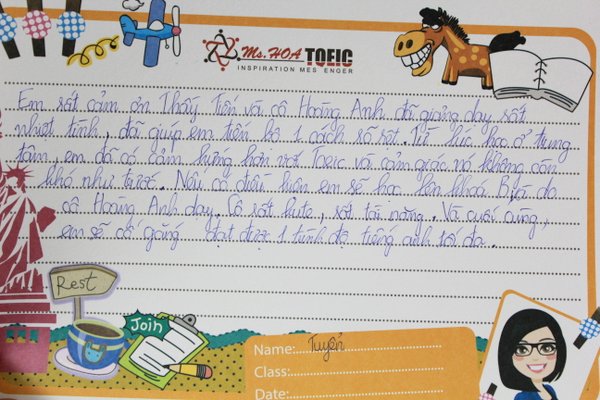 Ms. HOA TOEIC
INSPIRATION MESSENGER
Em rất cảm ơn Thầy Tiến và cô Hoàng Anh đã giảng dạy rất
nhiệt tình, đã giúp em tiến bộ 1 cách rõ rệt. Từ lúc học ở trung
tâm, em đã có cảm hứng hơn với Toeic và cảm giác nó không còn
khó như trước. Nếu có điều kiện em sẽ học lên khoá B, do
cô Hoàng Anh dạy. Cô rất kute, rất tài năng. Và cuối cùng,
em sẽ cố gắng đạt được 1 trình độ tiếng anh tối đa.
Rest
Join
Name: Tuyến
Class:
Date: